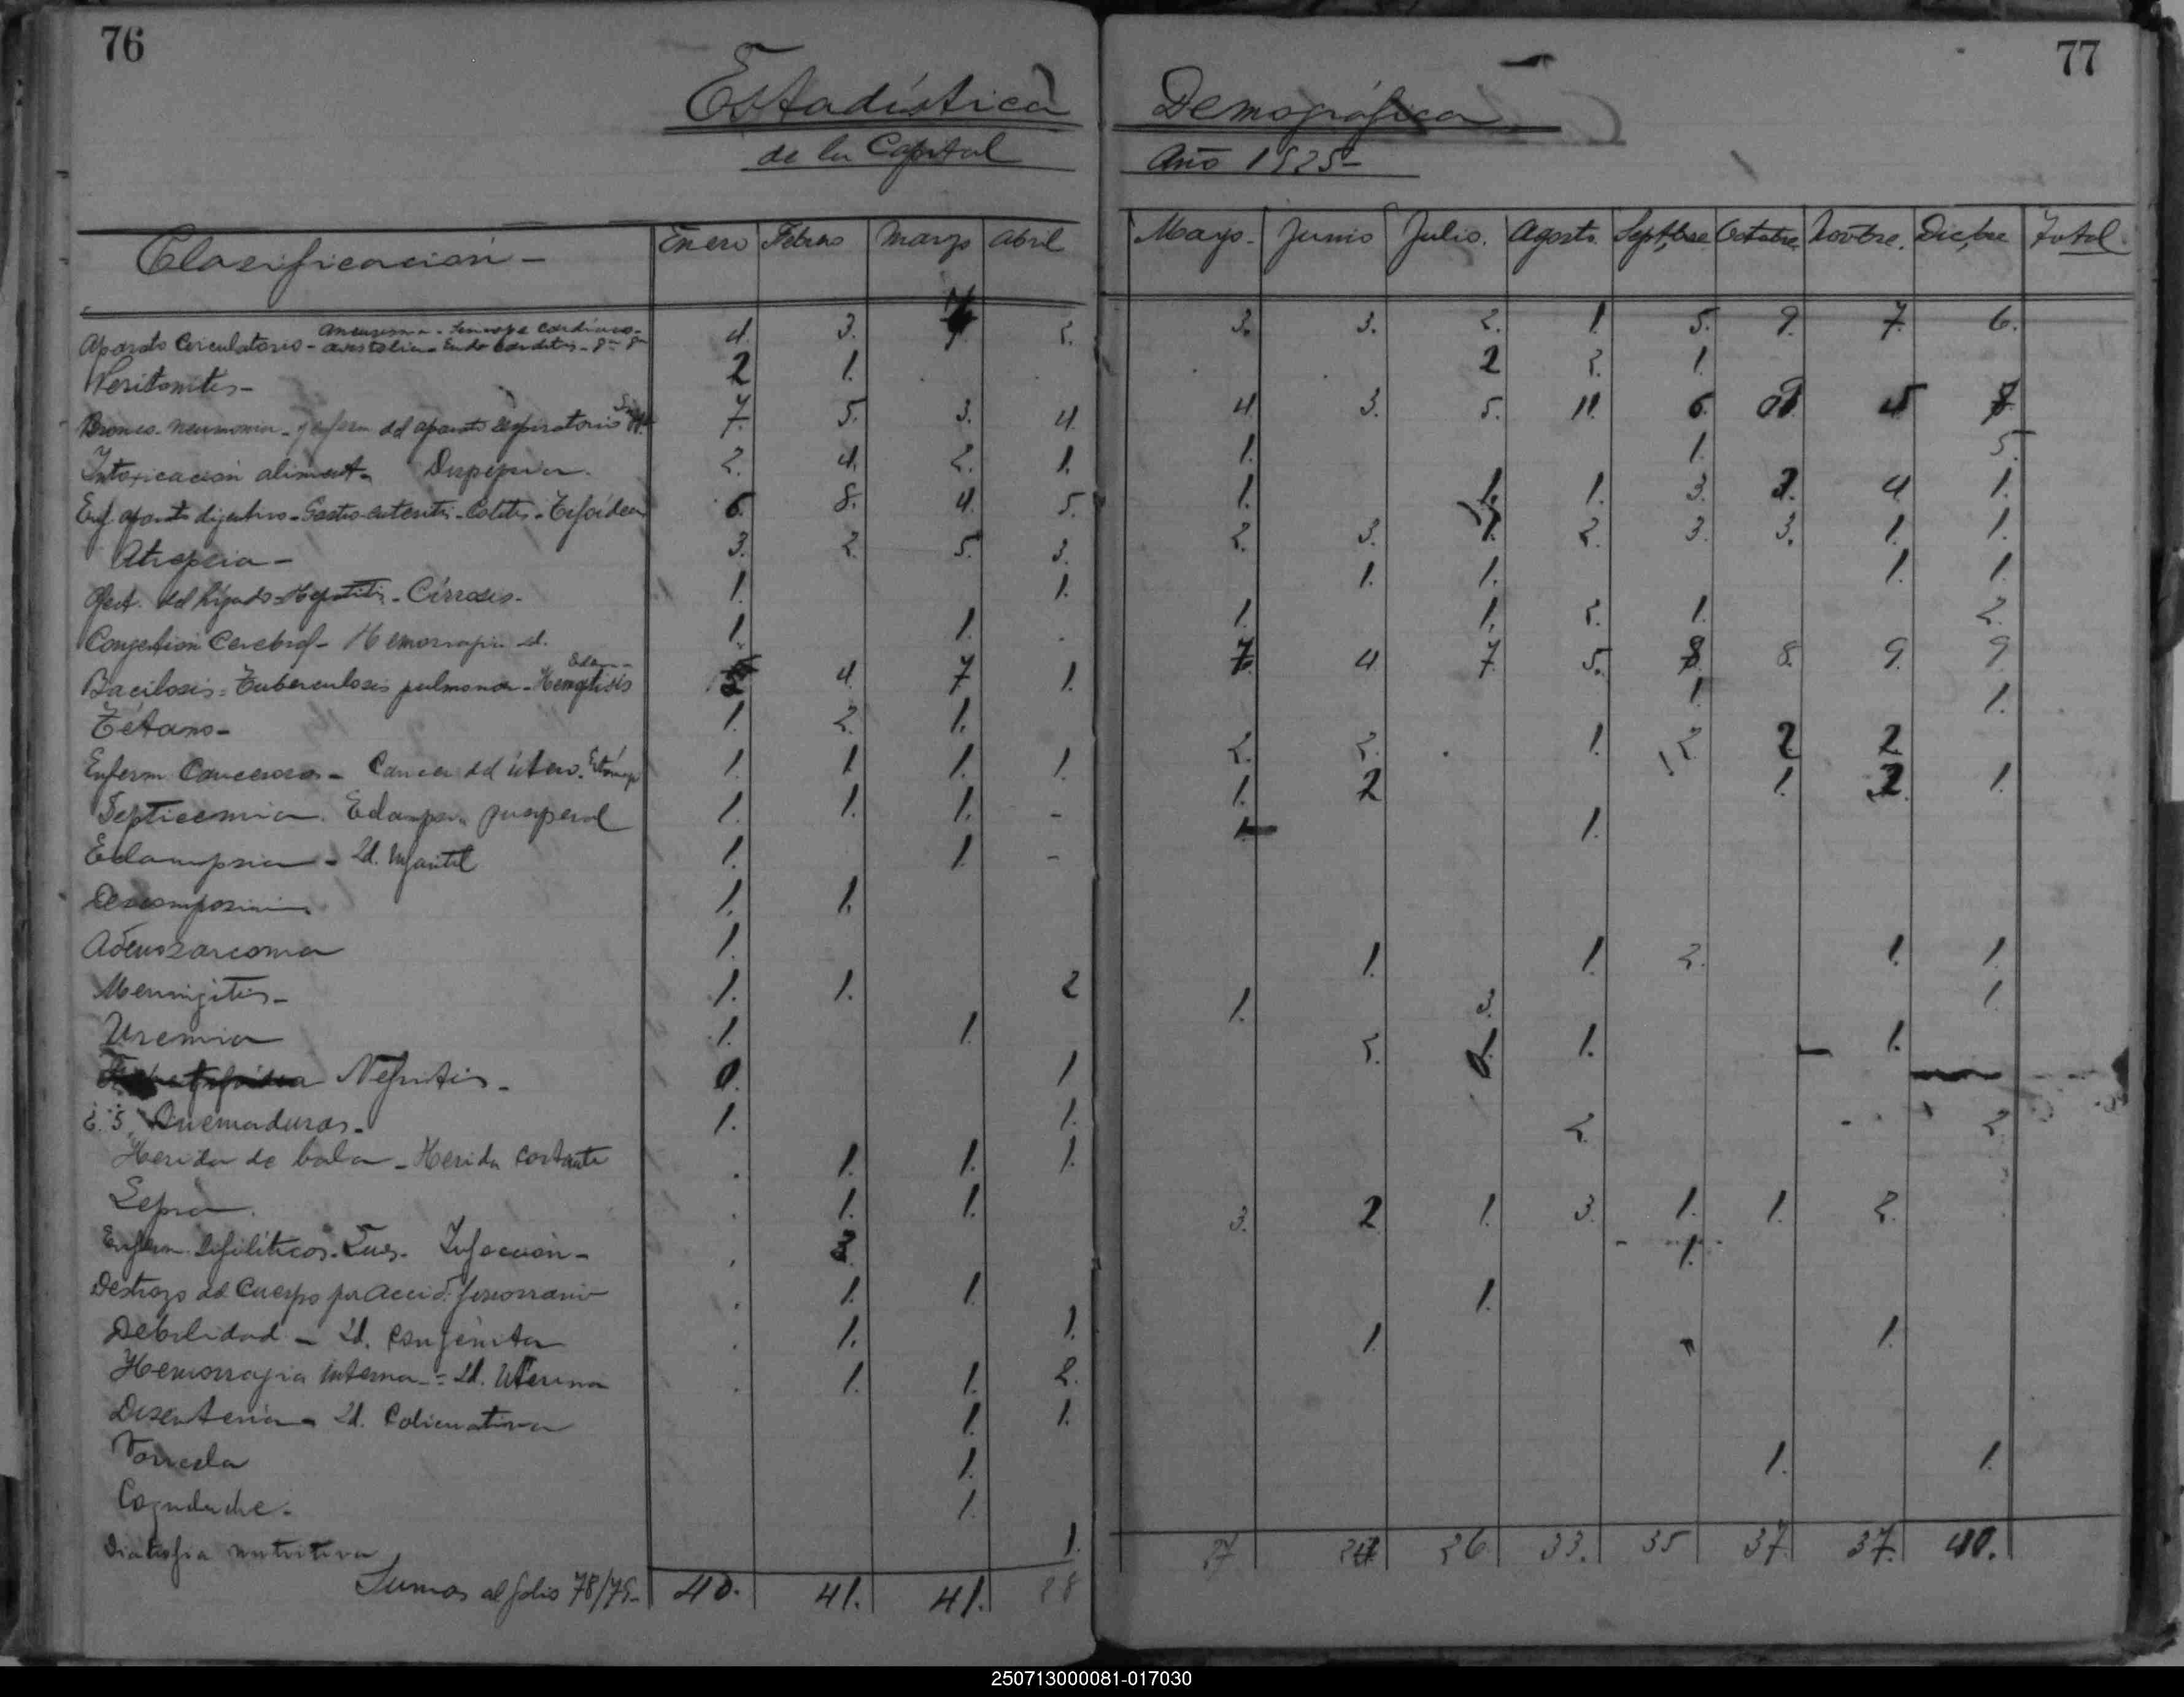 76
77
Estadística Demográfica
de la Capital Año 1925-
Clasificacion- Enero Febrero Marzo Abril Mayo- Junio Julio. Agosto. Septbre Octubre Novbre. Dicbre Total
Aneurisma - Sincope Cardíaco-
Aparato Circulatorio - Asistolia - Endocarditis - 4. 3. 2. 3. 3. 2. 1. 5. 9. 7. 6.
Peritonitis- 2 1. 2 2. 1.
Bronco-neumonia - y enferm del aparato respiratorio 7. 5. 3. 4. 4. 3. 5. 11. 6. 4 7.
Intoxicación aliment- Dispepsia. 2. 4. 2. 1. 1. 1. 5.
Enf. aparato digestivo - Gastro enteritis - Colitis - Tifoidea 6. 8. 4. 5. 1. 1. 1. 3. 2. 4 1.
Atrepsia- 3. 2. 5. 3. 2. 3. 1. 2. 3. 3. 1. 1.
Afect. del hígado - Hepatitis - Cirrosis- 1. 1. 1. 1. 1. 1.
Congestion Cerebral - Hemorragia id. 1. 1. 1. 1. 2. 1. 2.
Bacilosis = Tuberculosis pulmonar - Hemoptisis 5 4. 7 1. 7. 4 7. 5. 8. 8. 9. 9.
Tétano- 1. 2. 1. 1. 1.
Enferm Cancerosas - Cancer del útero. Estómago 1. 1 1. 1. 2. 2. 1. 2. 2 2
Septicemia. Eclampsia puerperal 1. 1. 1. - 1. 2 1. 2. 1.
Eclampsia - Id. Infantil 1. 1. - 1. 1.
Descomposicion 1. 1.
Adenosarcoma 1. 1. 1. 2. 1. 1.
Meningitis- 1. 1. 2 1. 3. 1.
Uremia 1. 1. 2. 1. 1. 1.
Nefritis- 0. 1
Quemaduras- 1. 1. 2. 2.
Herida de bala - Herida cortante 1. 1. 1.
Lepra. 1. 1. 3. 2 1. 3. 1. 1. 2.
Enferm. Sifilíticas. Lues. Infeccion- 3. 1.
Destrozo del Cuerpo por Accid. ferroviario 1. 1. 1.
Debilidad - Id. Congénita 1. 1. 1. 1.
Hemorragia interna = Id. Uterina 1. 1. 2.
Disenteria - Id. Colicuativa 1. 1.
Viruela 1. 1. 1.
Coqueluche. 1.
Distrofia nutritiva 1.
Sumas al folio 78/79- 40. 41. 41. 28 27 24 26 33. 35 37. 37. 40.
250713000081-017030